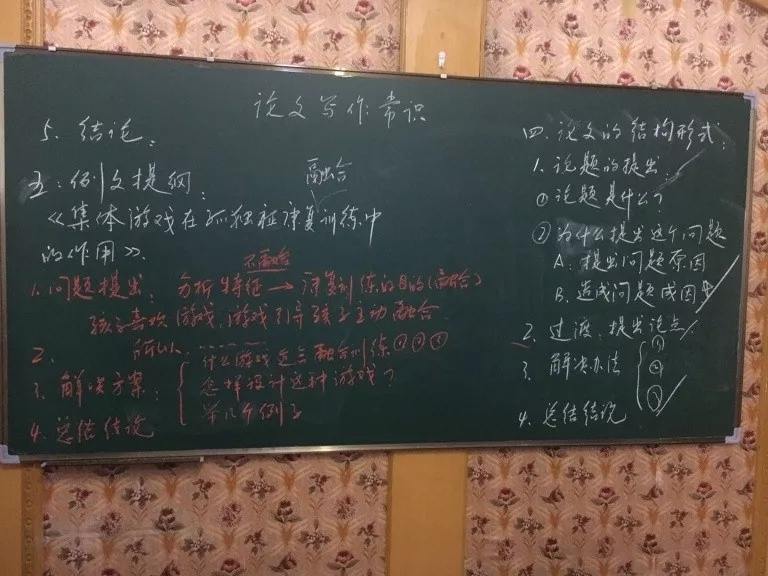 论文写作常识
5. 结论:
五:例文提纲:
融合
《集体游戏在孤独症康复训练中
的作用》.
不融合
1. 问题提出: 分析特征→康复训练的目的(融合)
孩子喜欢游戏, 游戏引导孩子主动融合
2. 所以, ……
3. 解决方案: 什么游戏适合融合训练①②③
怎样设计这种游戏?
举几个例子
4. 总结结论
四. 论文的结构形式:
1. 论题的提出:
① 论题是什么?
② 为什么提出这个问题
A. 提出问题原因
B. 造成问题成因
2. 过渡、提出论点
3. 解决办法 ① ② ③
4. 总结结论